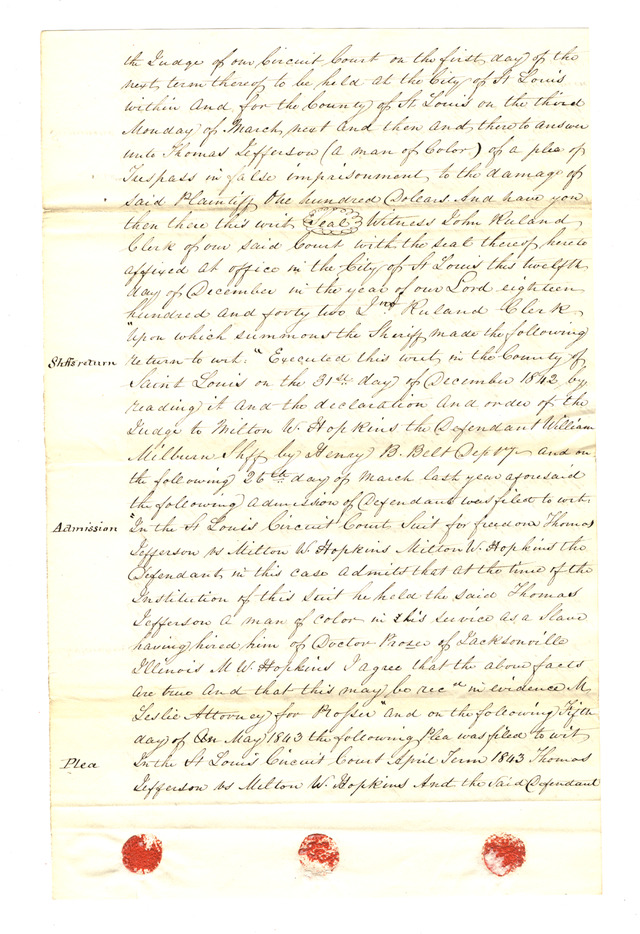 the Judge of our Circuit Court on the first day of the
next term thereof to be held at the City of St Louis
within and for the County of St Louis on the third
Monday of March next and then and there to answer
unto Thomas Jefferson (a man of Color) of a plea of
Trespass in false imprisonment to the damage of
said Plaintiff One hundred Dollars And have you
then there this writ Seal Witness John Ruland
Clerk of our said Court with the seal thereof hereto
affixed at office in the City of St Louis this twelfth
day of December in the year of our Lord eighteen
hundred and forty two Jno Ruland Clerk
"upon which summons the Sheriff made the following
Shffs return
return to wit: "Executed this writ in the County of
Saint Louis on the 31st day of December 1842 by
reading it and the declaration and order of the
Judge to Milton W. Hopkins the Defendant William
Milburn Shff by Henry B. Belt Depty" and on
the following 26th day of March last year aforesaid
the following admission of Defendant was filed to wit:
Admission
"In the St Louis Circuit Court Suit for freedom Thomas
Jefferson vs Milton W. Hopkins Milton W. Hopkins the
Defendant in this case admits that at the time of the
Institution of this suit he held the said Thomas
Jefferson a man of color in his service as a Slave
having hired him of Doctor Prosser of Jacksonville
Illinois M W. Hopkins I agree that the above facts
are true and that this may be recd in evidence M
Leslie Attorney for Prosser" and on the following Fifth
day of May 1843 the following Plea was filed to wit
Plea
In the St Louis Circuit Court April Term 1843 Thomas
Jefferson vs Milton W. Hopkins And the said Defendant